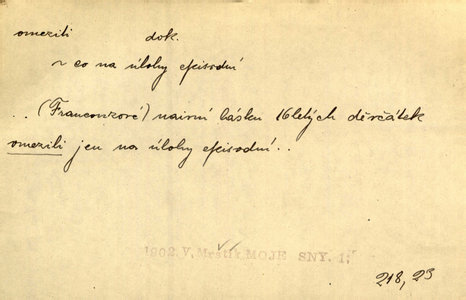 omezili dok.
~ co na úlohy episodní
.. (Francouzové) naivní lásku 16letých děvčátek
omezili jen na úlohy episodní..
1902. V. Mrštík, MOJE SNY. 1:
218, 23